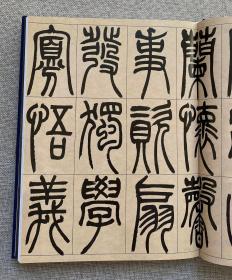 蘭懷馨
事資扇
發獨學
寡悟義